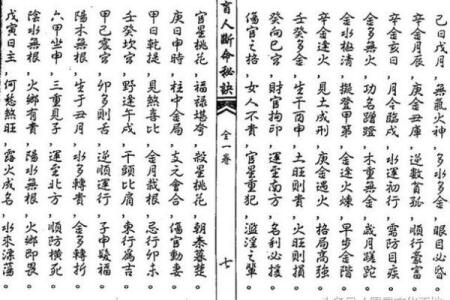 己日戌月，無氣火神，多水多金，眼目必昏。
辛金月辰，庚金丑庫，逆數首孤，順行豪富。
辛金亥日，月令臨戌，水運初行，需防目疾。
金多無火，功名蹭蹬，木重無金，歲月蹉跎。
金水極清，擬登甲第，金逢火煉，早步金階。
辛金逢火，見土成刑，庚金遇火，格局高強。
壬癸多金，生于酉申，土旺則貴，火旺則損。
癸向巳宮，財官拘印，運至南方，名利必揚。
傷官之格，女人不貴，官星重犯，濫淫之輩。
盲人斷命秘訣
全一卷
七
官星桃花，福祿堪夸，殺星桃花，朝秦暮楚。
庚日申時，柱中金局，支元會合，傷官動妻。
甲日乾提，見煞喜比，金月戴根，忌行卯未。
壬癸坎宮，野逢午戌，干頭比肩，東行為吉。
甲己震宮，卯多則舌，逆順運行，子申疑福。
陽木無根，生于丑月，水多轉貴，金多轉折。
六甲坐申，三重見子，運至北方，順防橫死。
陰水無根，火鄉有貴，陽水無根，火鄉即畏。
戊寅日主，何愁煞旺，露火成名，水來漂蕩。